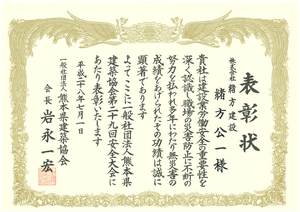 表彰状
株式会社 緒方建設
緒方公一様
貴社は建設業労働安全の重要性を
深く認識し職場の災害防止に不断の
努力を払われ多年にわたり無災害の
成績をあげられたその功績は誠に
顕著であります
よってここに一般社団法人熊本県
建築協会第二十九回安全大会に
あたり表彰いたします
平成二十八年七月一日
一般社団法人 熊本県建築協会
会長 岩永一宏